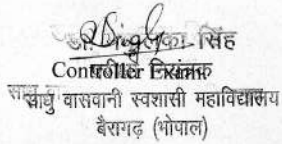 डॉ. सिंह
Controller Exam
परीक्षा नियंत्रक
साधु वासवानी स्वशासी महाविद्यालय
बैरागढ़ (भोपाल)